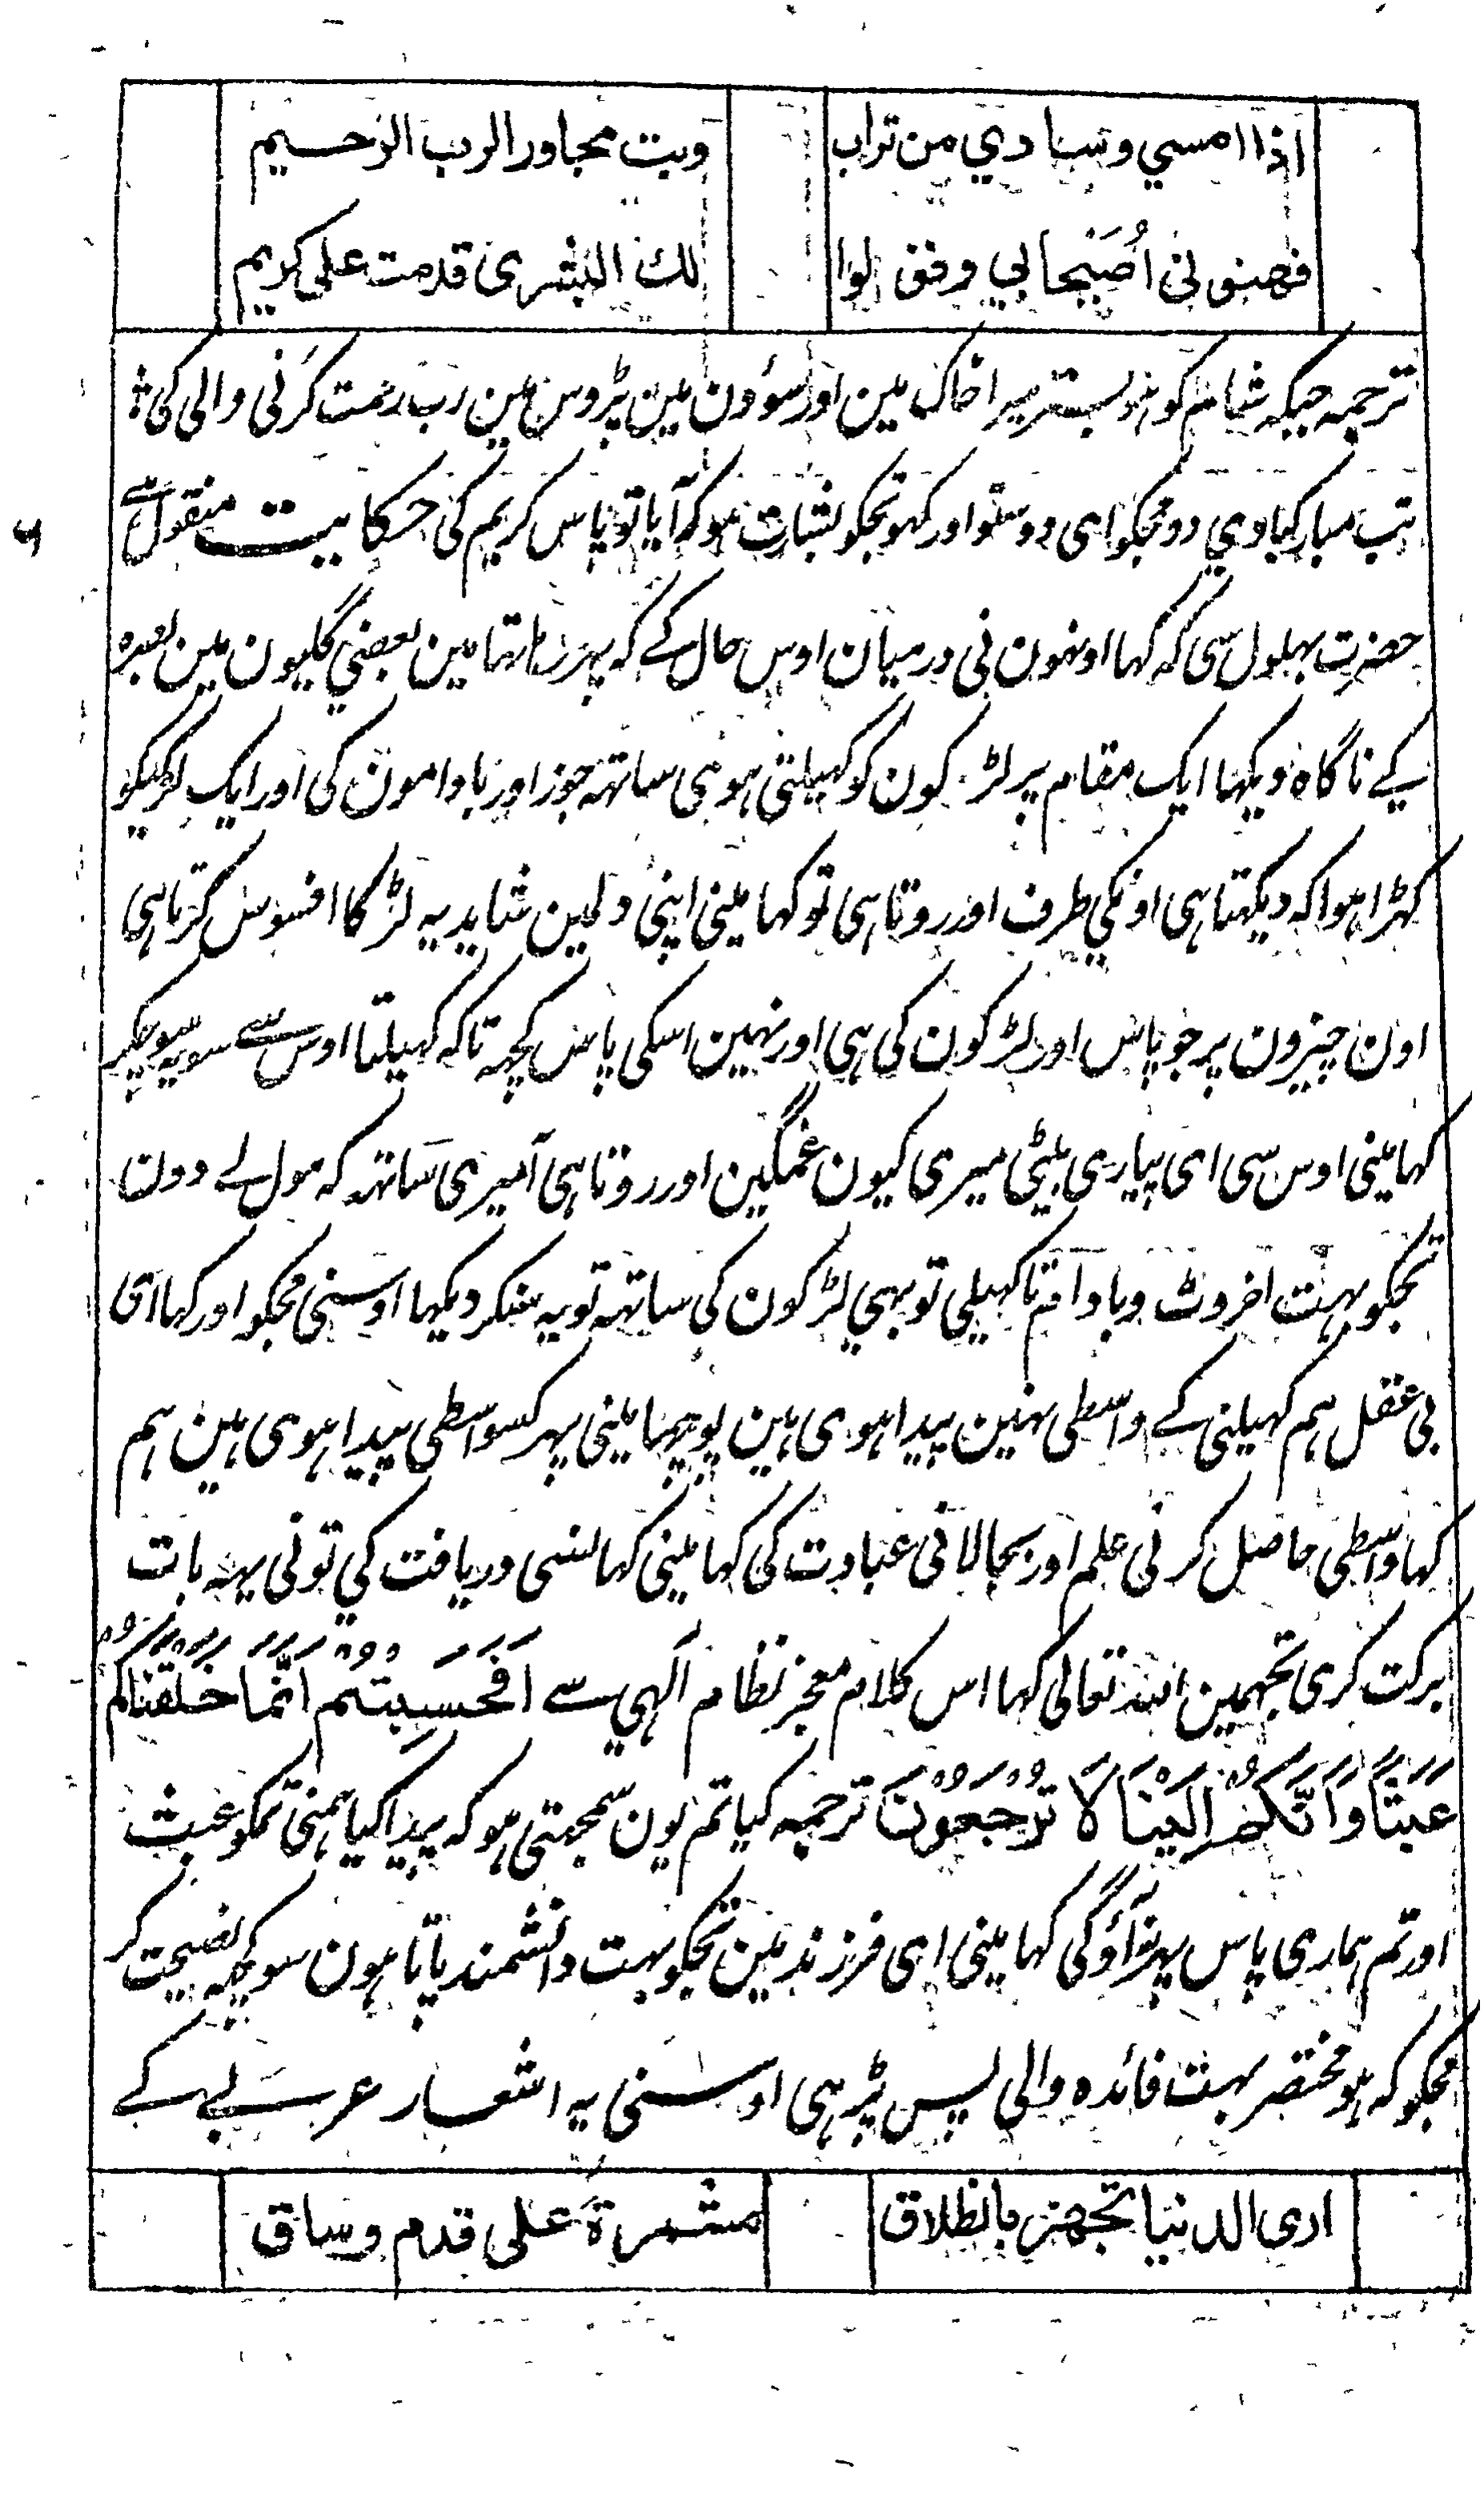 اذا امسي وسادي من تراب وبت مجاور الرب الرحيم
فهنو نی اُصَیحابي وقولوا لك البشری قدمت علی کریم
ترجمہ جبکہ شام کو ہو بستر میرا خاک مین اور سوؤن مین پڑوس مین رب رحمت کرنی والی کی
تب مبارکبادي دو مجکو ای دوستو اور کہو تجکو بشارت ہو کہ آیا تو پاس کریم کی حکایت منقول ہے
حضرت بہلول سی کہ کہا اونہون نی درمیان اوس حال کے کہ پہرتا تہا مین بعضي گلیون مین بصرہ
کے ناگاہ دیکہا ایک مقام پر لڑکون کو کہیلتی ہوئی ساتہہ جوز اور بادامون کی اور ایک لڑکیکو
کہڑا ہوا کہ دیکہتا ہی اونکي طرف اور روتا ہی تو کہا مینی اپنی دلمین شاید یہ لڑکا افسوس کرتا ہی
اون چیزون پر جو پاس اور لڑکون کی ہی اور نہین اسکی پاس کچہہ تا کہ کہیلتا اوس سے سو یہ سوچکر
کہا مینی اوس سی ای پیاری بیٹی میری کیون غمگین اور روتا ہی آ میری ساتہہ کہ مول لے دون
تجکو بہت اخروٹ و بادام تا کہیلی تو بہي لڑکون کی ساتہہ تو یہ سنکر دیکہا اوسنی مجکو اور کہا ای
بی عقل ہم کہیلنی کے واسطی نہین پیدا ہوی ہین پوچہا مینی پہر کسواسطی پیدا ہوی ہین ہم
کہا واسطی حاصل کرنی علم اور بجا لانی عبادت کی کہا مینی کہانسی دریافت کي تونی یہہ بات
برکت کری تجہمین اللہ تعالی کہا اس کلام معجز نظام الٰہي سے اَفَحَسِبْتُمْ اَنَّمَا خَلَقْنَاکُمْ
عَبَثًا وَاَنَّکُمْ اِلَیْنَا لَا تُرْجَعُوْنَ ترجمہ کیا تم یون سمجہتی ہو کہ پیدا کیا ہمنی تمکو عبث
اور تم ہماری پاس پہر نہ آؤگی کہا مینی ای فرزند مین تجکو بہت دانشمند پاتا ہون سو کچہہ نصیحت کر
مجکو کہ ہو مختصر بہت فائدہ والی پس پڑہی اوسنی یہ اشعار عربی کے
اری الدنیا تجهز بانطلاق مشمرة علی قدم وساق